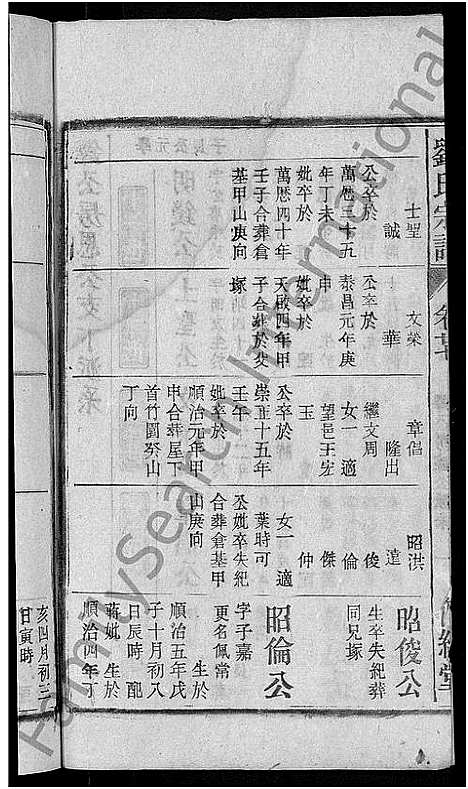 劉氏宗譜
卷七
士聖
誠
公卒於
萬歷三十五
年丁未
妣卒於
萬歷四十年
壬子合葬倉
基甲山庚向
文榮
華
公卒於
泰昌元年庚
申
妣卒於
天啟四年甲
子合妣於尖
塚
章倡
隆出
繼文周
女一適
望邑王宏
玉
公卒於
崇正十五年
壬午
妣卒於
順治元年甲
申合葬屋下
首竹園癸山
丁向
昭洪
達
俊
倫
傑
仲
女一適
葉時可
公妣卒失紀
合葬倉基甲
山庚向
昭俊公
生卒失紀葬
同兄塚
昭倫公
字子嘉
更名佩常
生於
順治五年戊
子十月初八
日辰時配
蔣妣生於
順治四年丁
亥四月初三
日寅時
FamilySearch International